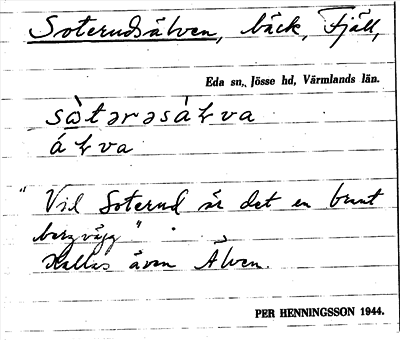 Soterudsälven, bäck, Fjäll,
Eda sn, Jösse hd, Värmlands län.
sò̀tərəsáɫva
áɫva
"Vid Soterud är det en brant
bergvägg".
Kallas även Älven.
PER HENNINGSSON 1944.